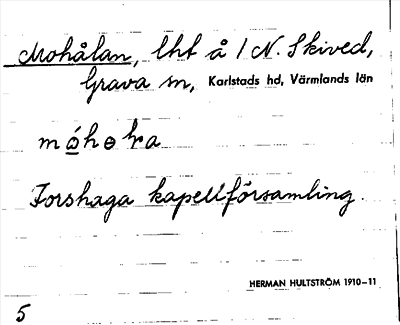 Mohålan, lht å 1 N. Skived,
Grava sn, Karlstads hd, Värmlands län
Forshaga kapellförsamling.
HERMAN HULTSTRÖM 1910-11
5